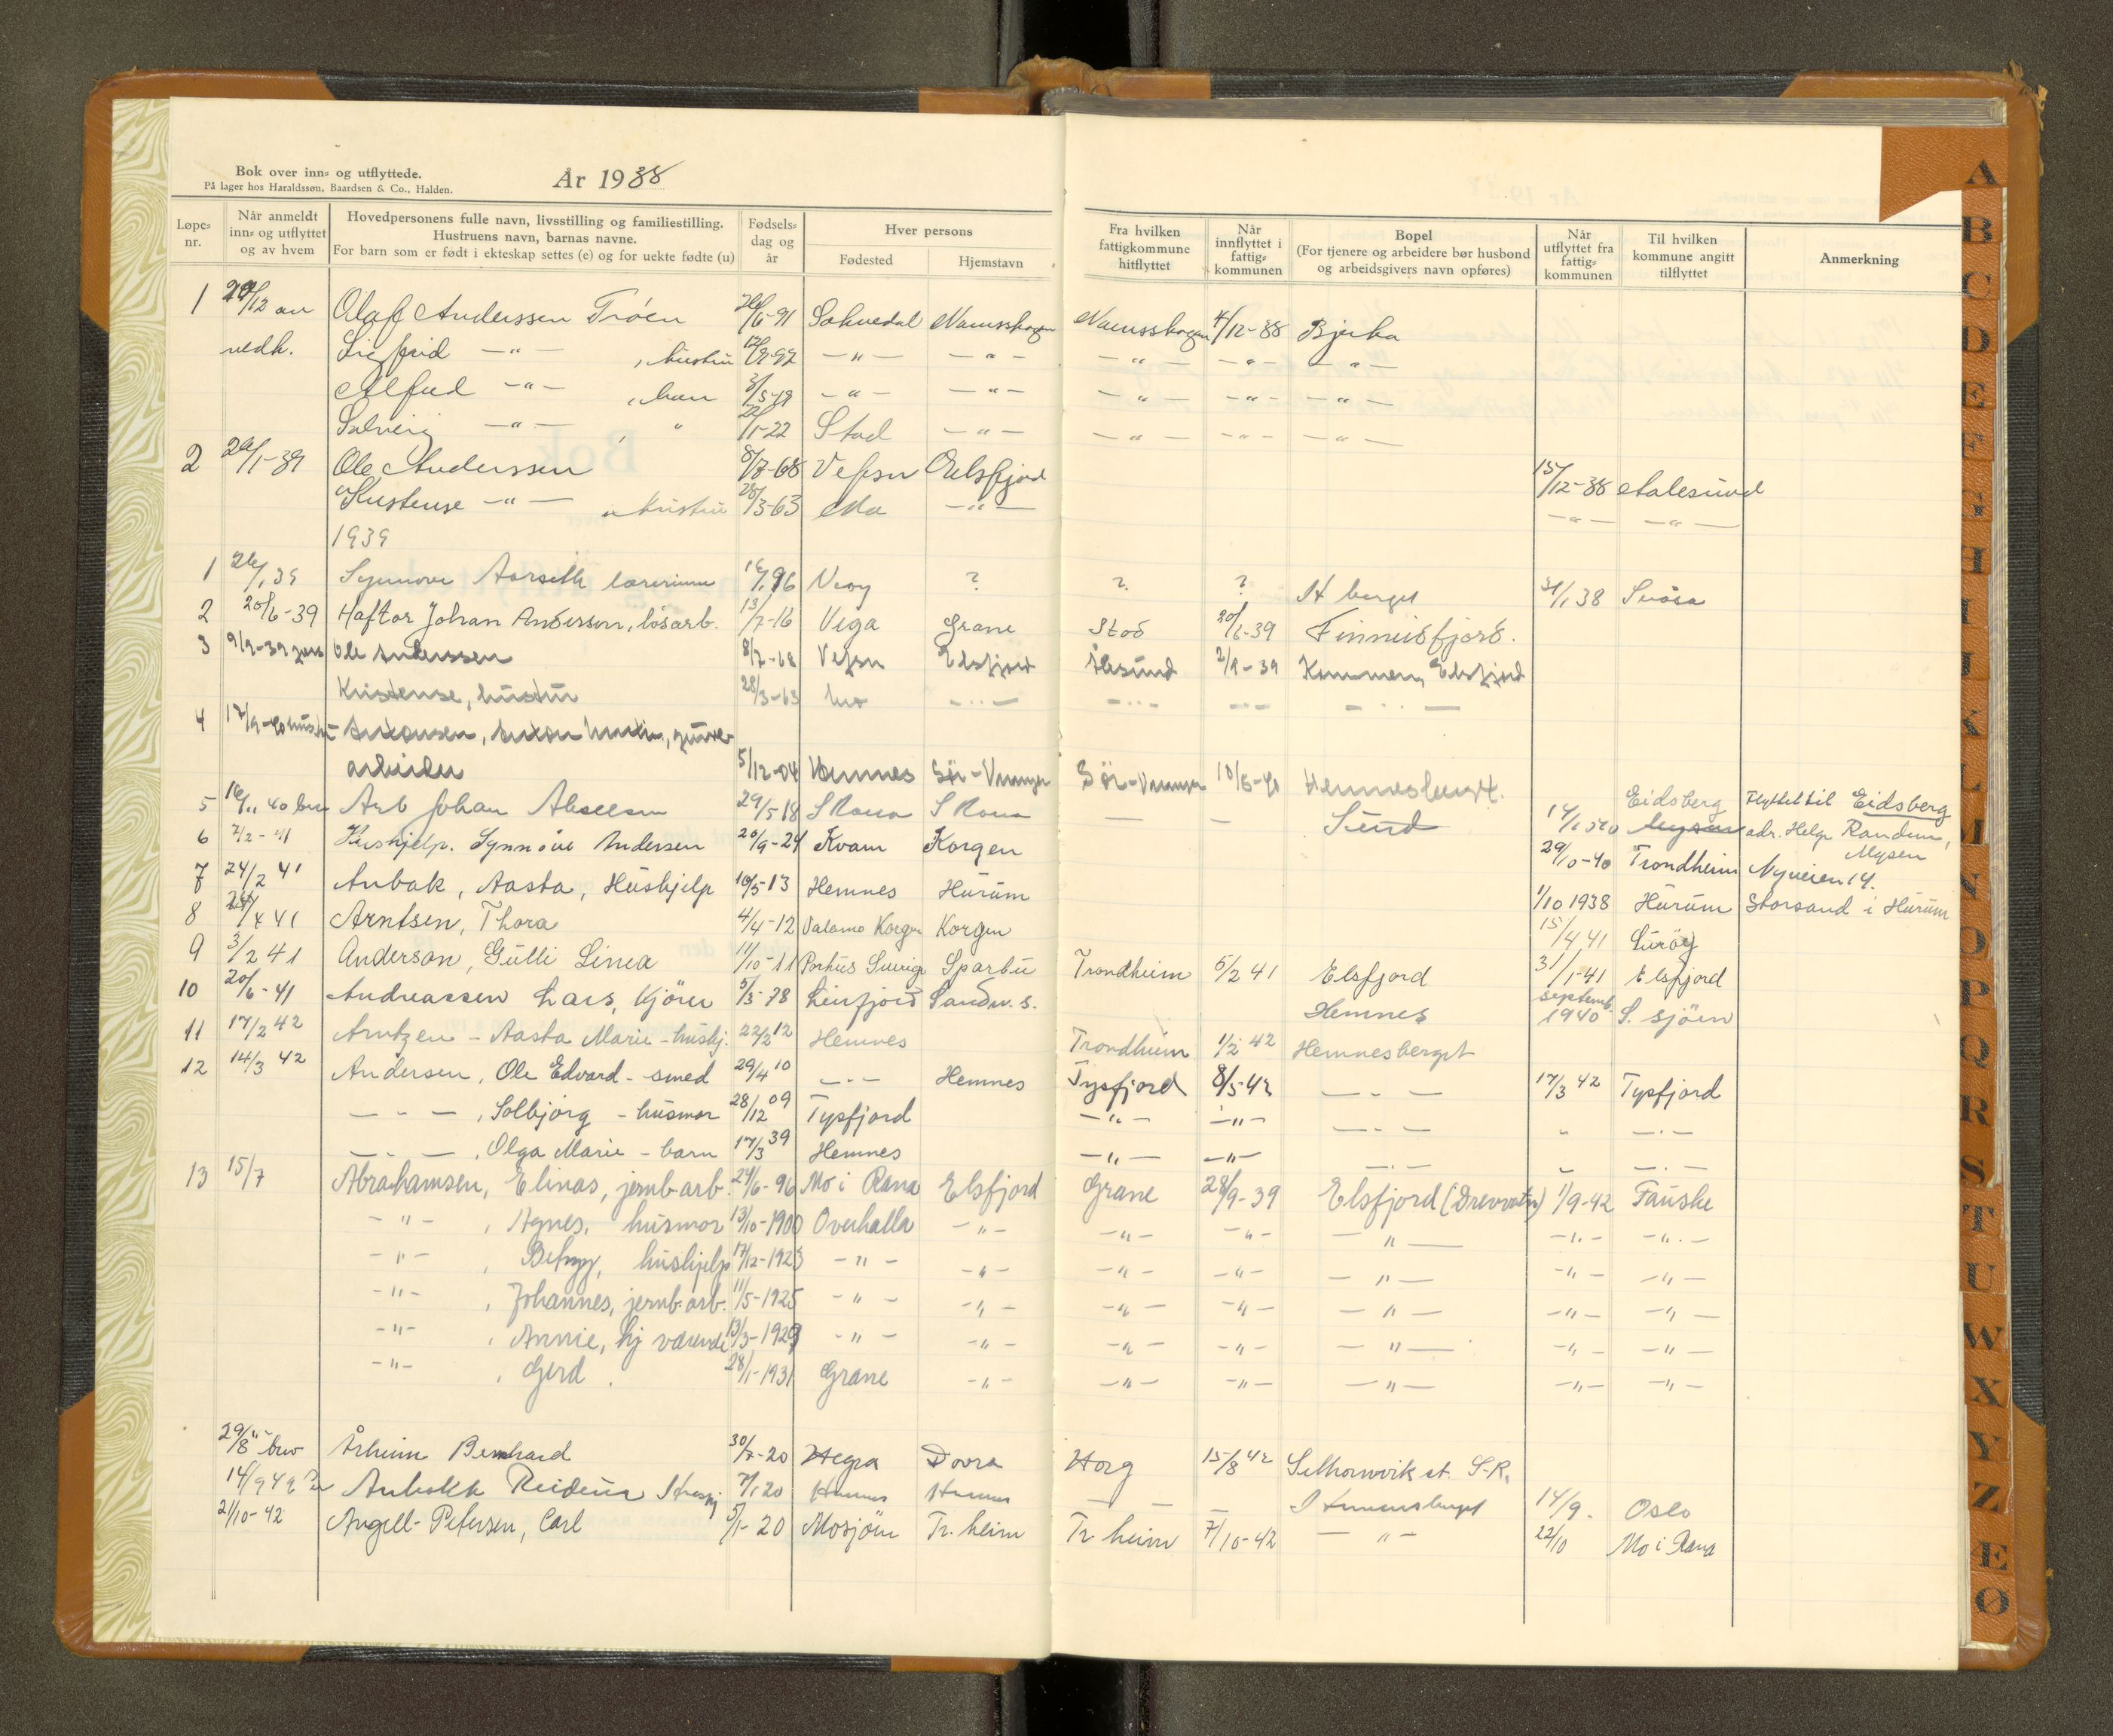 Bok over inn- og utflyttede.
På lager hos Haraldssøn, Baardsen & Co., Halden.
År 1938
Løpe-nr.
Når anmeldt inn- og utflyttet og av hvem
Hovedpersonens fulle navn, livsstilling og familiestilling. Hustruens navn, barnas navne. For barn som er født i ekteskap settes (e) og for uekte fødte (u)
Fødsels-dag og år
Hver persons
Fødested
Hjemstavn
Fra hvilken fattigkommune hitflyttet
Når innflyttet i fattig-kommunen
Bopel (For tjenere og arbeidere bør husbond og arbeidsgivers navn opføres)
Når utflyttet fra fattig-kommunen
Til hvilken kommune angitt tilflyttet
Anmerkning
1 Olaf Anderssen Trøen 26/6-91 Namsskogen Namsskogen 4/12-38 Bjerka
vedk. Sigfrid -"- , hustru -"- -"- -"- -"- -"-
Alfred -"- , barn 3/5-19 -"- -"- -"- -"- -"-
Solveig -"- , " 22/1-22 Stod -"- -"- -"- -"-
2 29/1-39 Ole Anderssen 8/7-68 Vefsn Elsfjord 15/12-38 Aalesund
Kristense -"- , hustru 28/3-63 Mo -"- -"- -"-
1939
1 26/1 39 Synnøve Aarseth lærerinne Veøy ? ? ? H berget 31/1 38
2 20/6-39 Haftor Johan Andersen, løsarb. 13/7-16 Vega Grane Stod 20/6-39 Finneidfjord.
3 9/9-39 Ole Anderssen 8/7-68 Vefsn Elsfjord Ålesund 2/9-39 Elsfjord
Kristense, hustru 28/3-63 Mo -"- -"- -"- -"-
4 17/9-40 hustru Antonsen, Anton
arbeider 5/12-04 Hemnes Sør-Varanger Sør-Varanger 10/6-40 Hemnesberget.
5 16/11 40 Arb Johan Akselsen 29/5-18 S Rana S Rana — — Sund Eidsberg Flyttet til Eidsberg
6 7/2-41 Hushjelp. Synnøve Andersen 20/9-24 Kvam Korgen 29/10-40 Trondheim adr. Helge Randem, Mysen
Nyveien 14.
7 24/2 41 Anbak, Aasta, Hushjelp 10/5-13 Hemnes Hurum 1/10 1938 Hurum Storsand i Hurum
8 /4 41 Arntsen, Thora 4/4-12 Korgen Korgen 15/4 41 Lurøy
9 3/2 41 Anderson, Gulli Linea 11/10-11 Sverige Sparbu Trondheim 5/2 41 Elsfjord 31/1-41 Elsfjord
10 20/6-41 Andreassen Lars, Kjører 5/3-78 Leirfjord Sandn. s. Hemnes septemb. 1940 S. sjøen
11 17/2 42 Arntzen - Aasta Marie - hushj. 22/2 12 Hemnes Trondheim 1/2 42 Hemnesberget
12 14/3 42 Andersen, Ole Edvard - smed 29/4 10 -"- Hemnes Tysfjord 8/5-42 -"- 17/3 42 Tysfjord
-"- , Solbjørg - husmor 28/12 09 Tysfjord -"- -"- -"- " -"-
-"- , Olga Marie - barn 17/3 39 Hemnes -"- -"- -"- " -"-
13 15/7 Abrahamsen, Elinas, jernb-arb. 24/6-96 Mo i Rana Elsfjord Grane 28/9-39 Elsfjord (Drevvatn) 1/9-42 Fauske
-"- , Agnes, husmor 13/10-1900 Overhalla -"- -"- -"- -"- -"- -"-
-"- , hushjelp 17/12-1923 -"- -"- -"- -"- -"- -"- -"-
-"- , Johannes, jernb.arb. 11/5-1925 -"- -"- -"- -"- -"- -"- -"-
-"- , Annie, hj værende 13/3-1929 -"- -"- -"- -"- -"- -"- -"-
-"- , Gerd. 28/1-1931 Grane -"- -"- -"- -"- -"- -"-
29/8 brev Årheim Bernhard 30/7-20 Hegra Dovre Horg 15/8 42 st. S-R.
14/9 42 Anbakk Reidun 7/1 20 Hemnes Hemnes — — Hemnesberget 14/9. Oslo
21/10-42 Angell-Petersen, Carl 5/1-20 Mosjøen Tr. heim Tr heim 7/10-42 -"- 22/10 Mo i Rana
A
B
C
D
E
F
G
H
I
J
K
L
M
N
O
P
Q
R
S
T
U
W
X
Y
Z
Æ
Ø